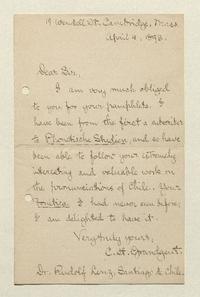 19 Wendell St. Cambridge, Mass
April 4, 1893.
Dear Sir,
I am very much obliged
to you for your pamphlets. I
have been from the first a subscriber
to Phonetische Studien, and so have
been able to follow your extremely
interesting and valuable work on
the pronunciations of Chile. Your
Fonética I had never seen before;
I am delighted to have it.
Very truly yours,
C. H. Grandgent.
Dr. Rudolf Lenz, Santiago de Chile.